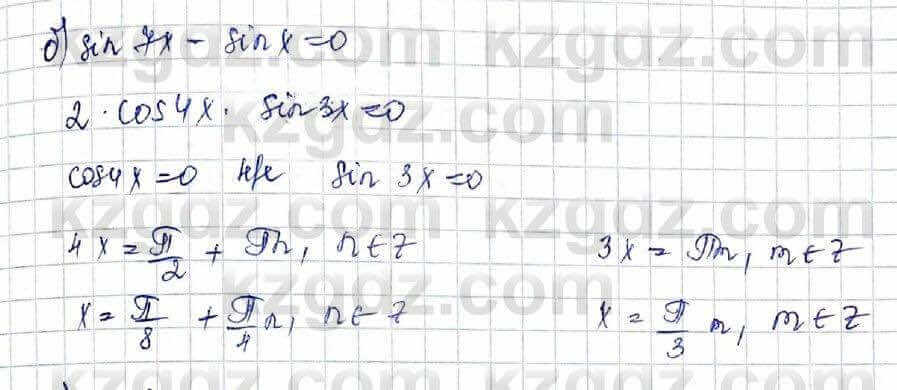 б) sin 7x - sin x = 0
2 · cos 4x · sin 3x = 0
cos 4x = 0 н/е sin 3x = 0
4x = π/2 + πn, n ∈ Z 3x = πm, m ∈ Z
x = π/8 + π/4 n, n ∈ Z x = π/3 m, m ∈ Z
kzgdz.com kzgdz.com
kzgdz.com
kzgdz.com kzgdz.com
kzgdz.com
kzgdz.com kzgdz.com